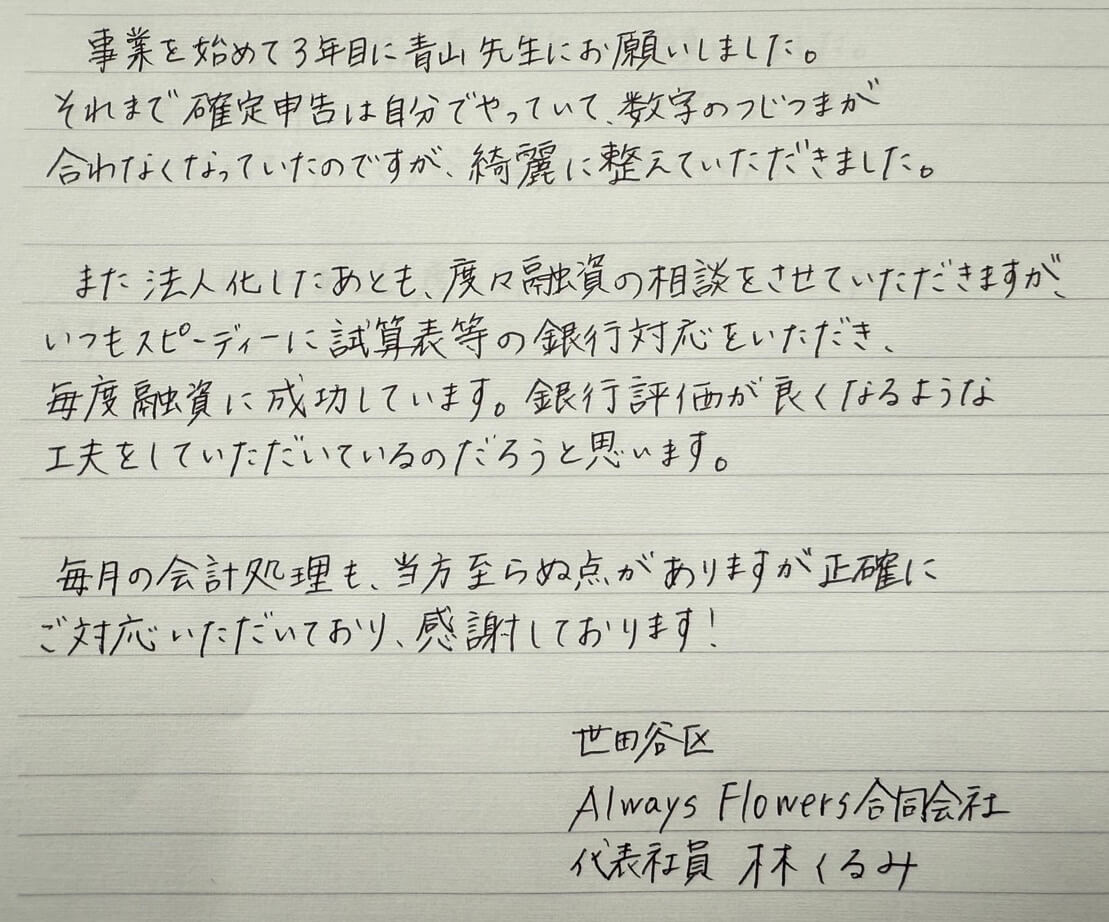 事業を始めて3年目に青山先生にお願いしました。
それまで確定申告は自分でやっていて、数字のつじつまが
合わなくなっていたのですが、綺麗に整えていただきました。
また法人化したあとも、度々融資の相談をさせていただきますが、
いつもスピーディーに試算表等の銀行対応をいただき、
毎度融資に成功しています。銀行評価が良くなるような
工夫をしていただいているのだろうと思います。
毎月の会計処理も、当方至らぬ点がありますが正確に
ご対応いただいており、感謝しております！
世田谷区
Always Flowers合同会社
代表社員 林くるみ